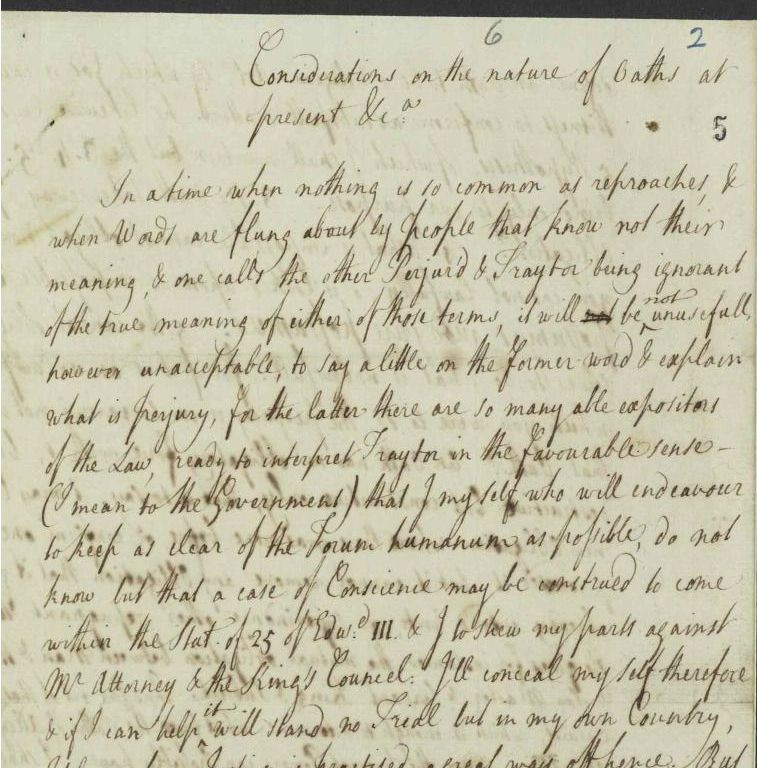 6 2
Considerations on the nature of Oaths at
present &c.a
5
In a time when nothing is so common as reproaches, &
when Words are flung about by people that know not their
meaning, & one calls the other Perjur'd & Traytor being ignorant
of the true meaning of either of those terms, it will not be not unusefull,
however unacceptable, to say a little on the former word & explain
what is perjury, for the latter there are so many able expositors
of the Law, ready to interpret Traytor in the favourable sense –
(I mean to the Government) that I my self who will endeavour
to keep as clear of the Forum humanum as possible, do not
know but that a case of Conscience may be construed to come
within the Stat. of 25 of Edw.d III. & I to shew my parts against
Mr Attorney & the King's Councel: I'll conceal my self therefore
& if I can help it will stand no Trial but in my own Country,
practised a great way off hence. But